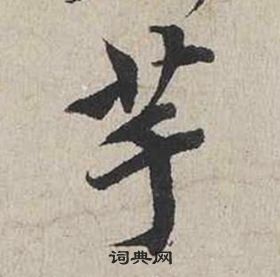 芋
词典网